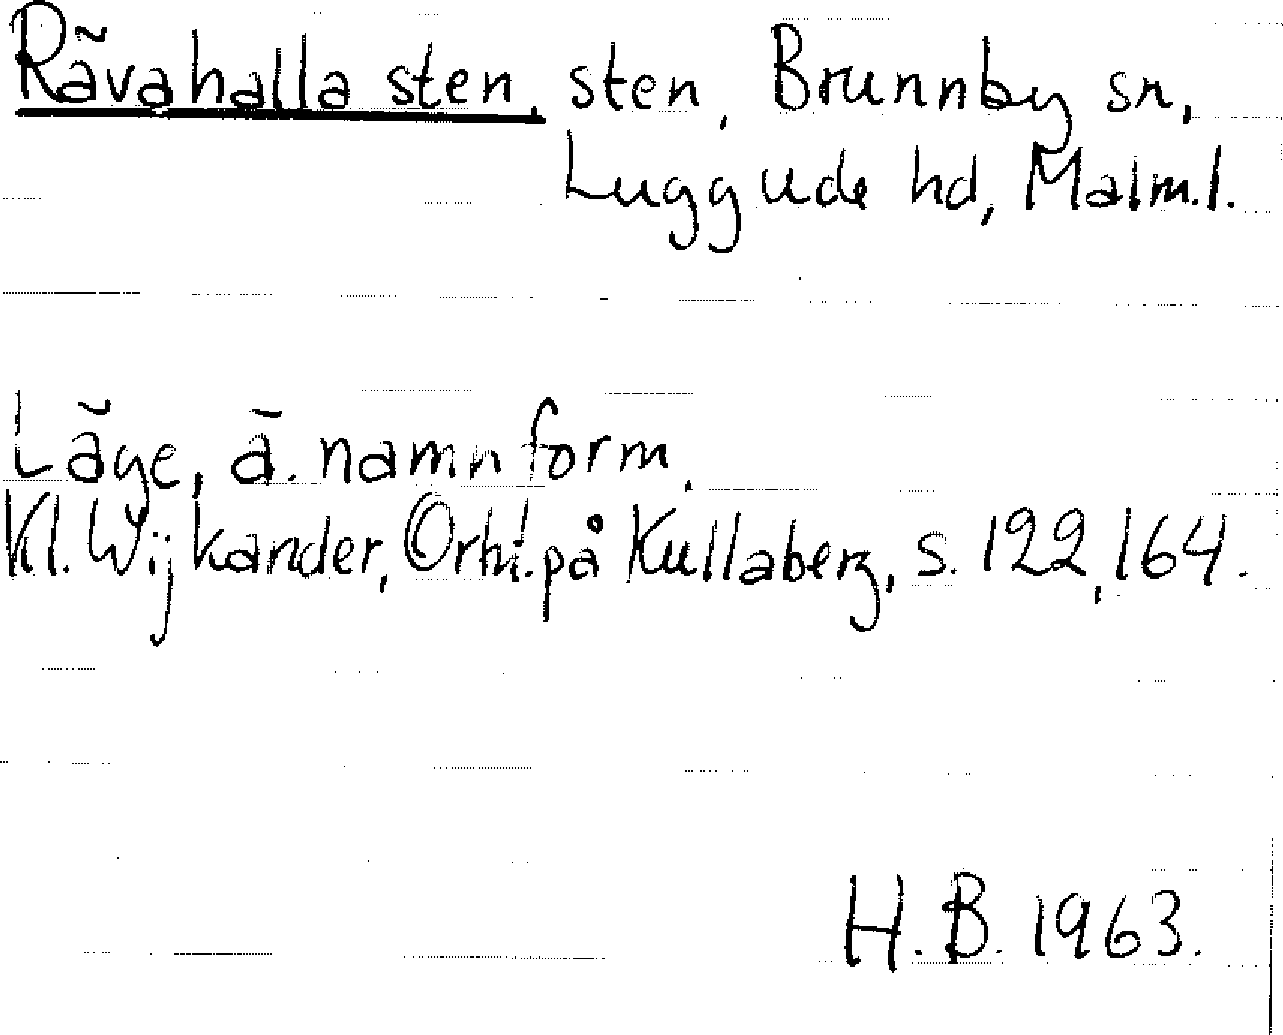 Rävahalla sten, sten, Brunnby sn,
Luggude hd, Malm.l.
Läge, ä. namnform.
Kl. Wijkander, Ortn. på Kullaberg, s. 122, 164.
H.B. 1963.